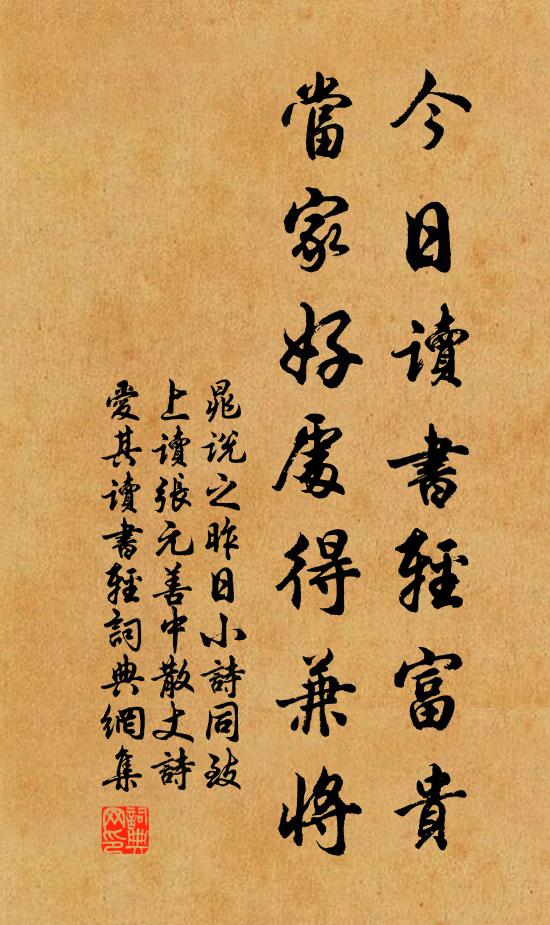 今日讀書輕富貴
當家好處得兼將
晁説之昨日小詩同致
上讀張元善中散丈詩
愛其讀書輕詞典網集
詞典网印